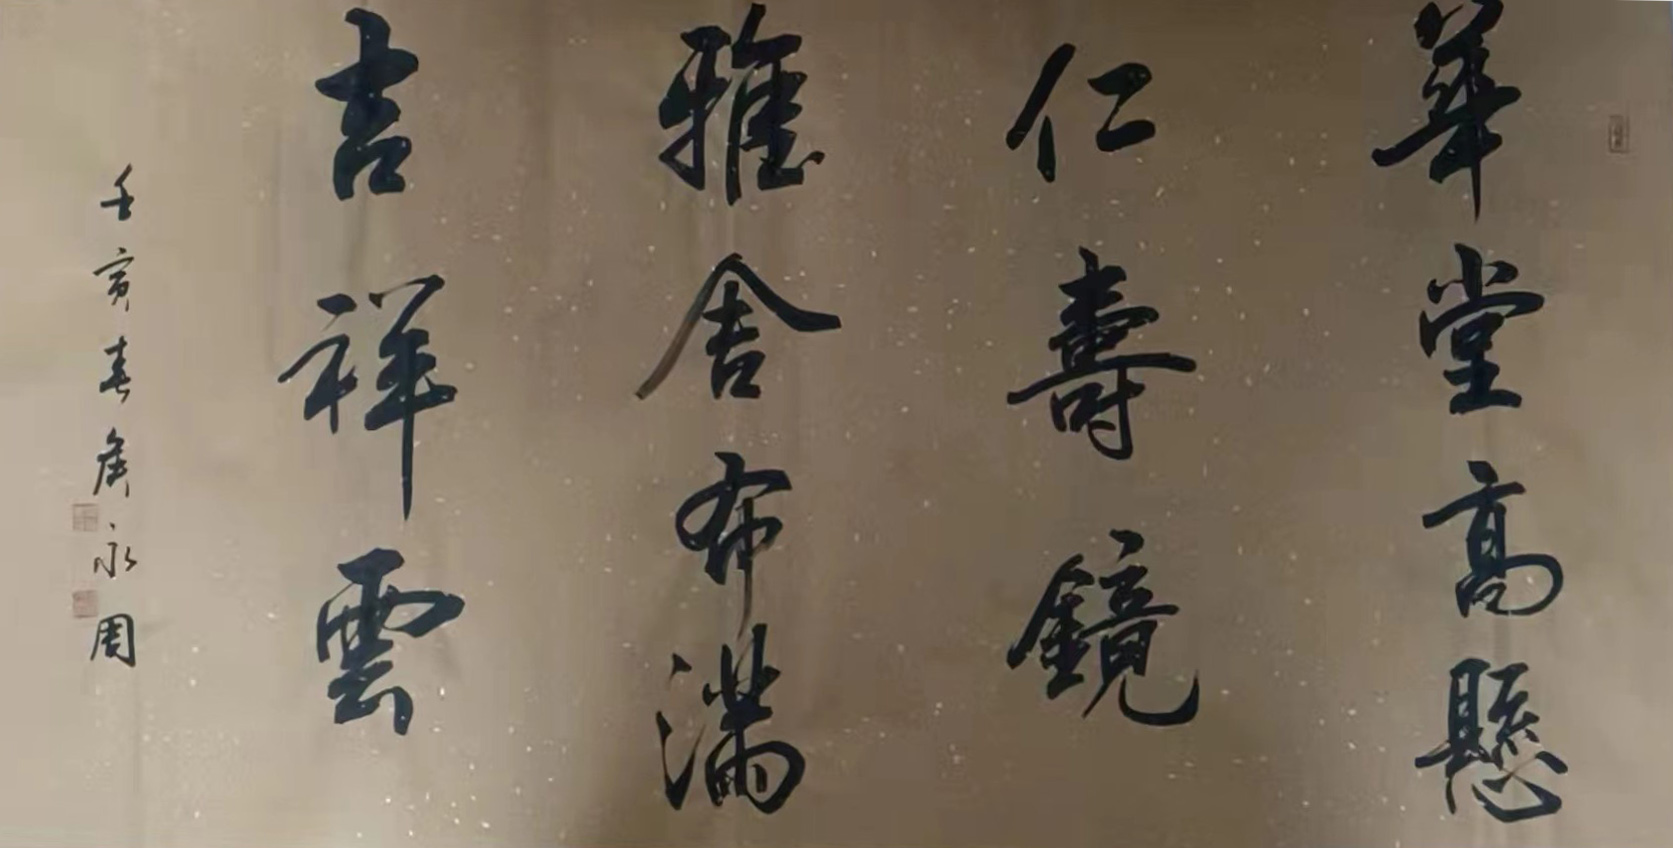 華堂高懸
仁壽鏡
雅舍布滿
吉祥雲
壬寅春月永周